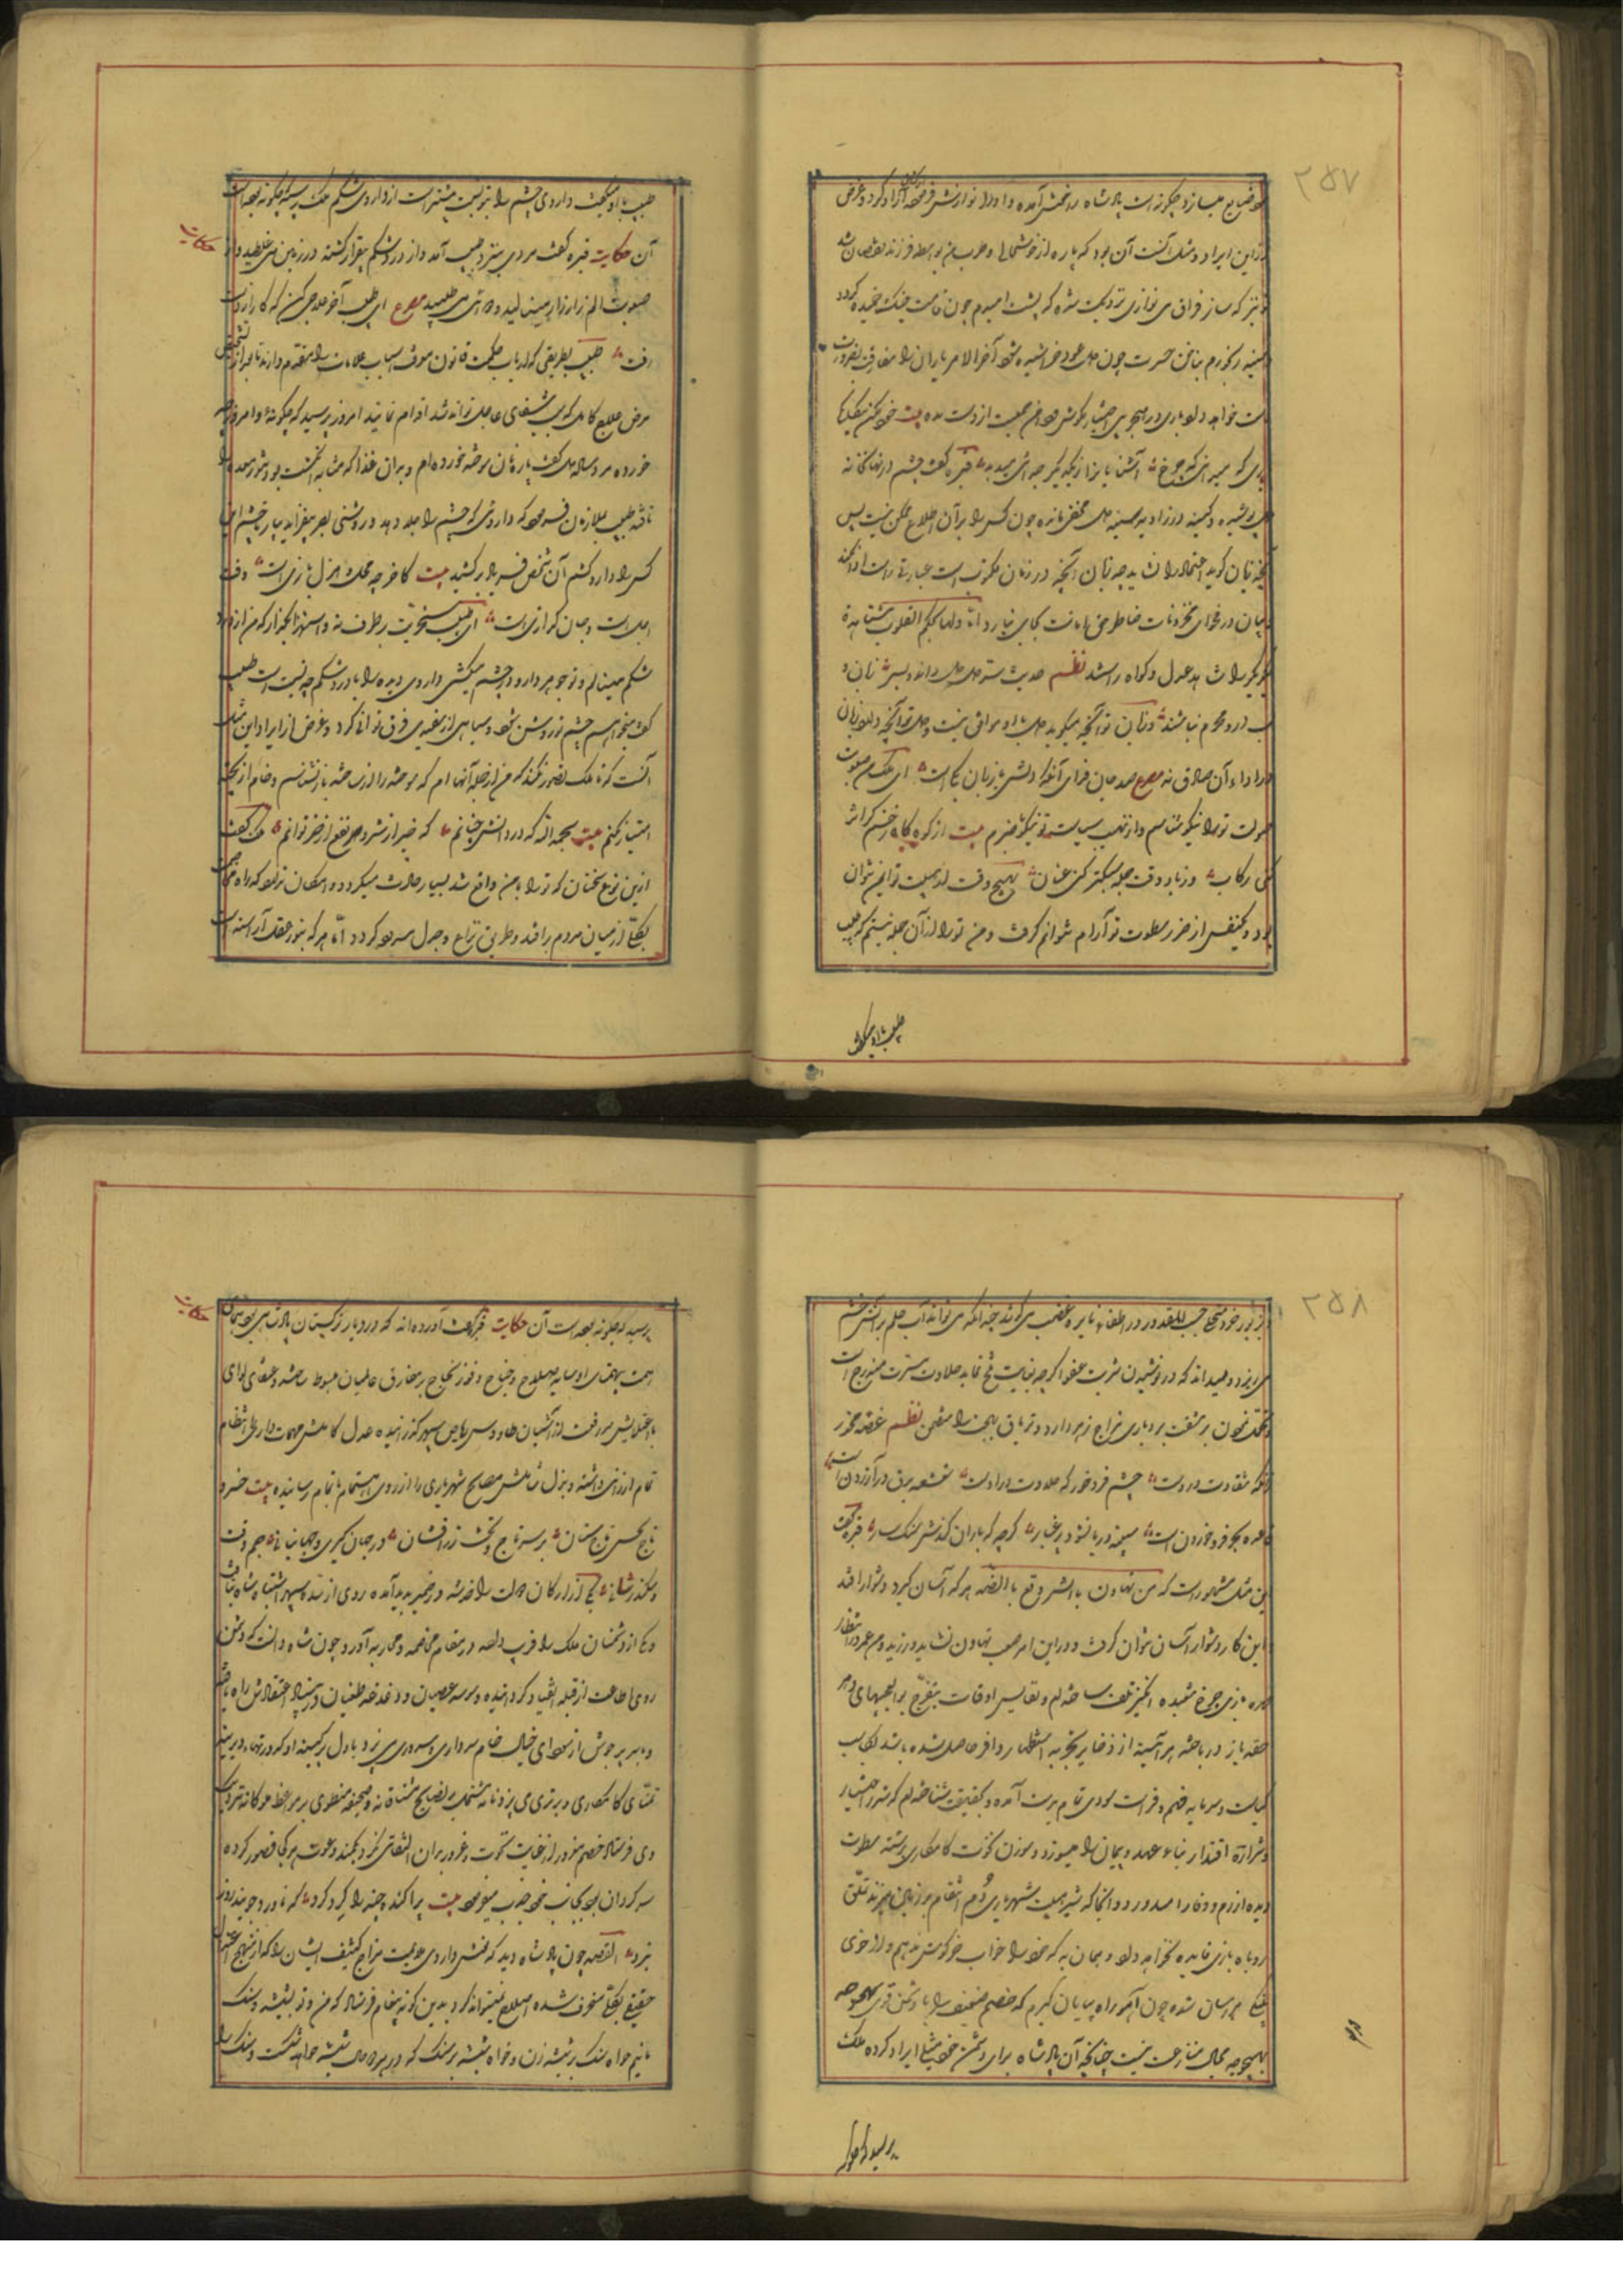 ۲۵۷
ضایع میسازد چگونه است پادشاه را خوش آمده و او را نوازش فرموده آزاد کرد و غرض
از این ایراد مثل آنست آن بود که پاره از خوشحالی و طرب من بواسطه فرزند نقصان شد
تو نیز که ساز فراق می نوازی نزدیک شده که پشت امیدم چون قامت چنگ خمیده گردد
و سینه رنجورم بناخن حسرت چون عود خراشیده شود آخر الامر یاران را مفارقت بضرورت
است خواهد داد باری در هجر بی اختیار بکوش و دامن صحبت از دست مده بیت خود مکن بیگانگی
باری که میدانی که چرخ آشنایانرا ز یکدیگر جدائی میدهد قبره گفت خشم در نهانخانه
دل پوشیده و کینه در زاویه سینه مخفی مانده چون کسی را بر آن اطلاع ممکن نیست پس
آنچه زبان گوید اعتماد را نشاید چه زبان آنچه در زمان مکتوب است عبارتی راست ادا نکند
و بیان در فحوای مخزونات خاطر حق امانت بجای نیارد اما دلها بحکم القلوب تتشاهد
یکدیگر را شاهد عدل و گواه راستند نظم حدیث سر دل دل داند و بس زبان و
لب درو محرم نباشند و زبان تو آنچه میگوید دل با او موافق نیست و دل تو آنچه دارد زبان
در اداء آن صادق نه مصرع صد جان فدای آنکه دلش با زبان یکیست ای ملک من صعوبت
صولت ترا نیکو شناسم و از نهیب سیاست تو نیکو باخبرم بیت از کوه گاه زخم گران‌تر
کنی رکاب وز باد وقت حمله سبکتر کنی عنان بهیچ وقت از هیبت تو ایمن نتوان
بود و یکنفس از ضرر سطوت تو آرام نتوانم گرفت و من ترا از آن جمله نیستم که طبیب
طبیب با او میگفت
طبیب با او میگفت داروی چشم ترا بنسبت بیشتر است از داروی شکم ملک پرسید که چگونه بوده است
آن حکایت قبره گفت مردی نزد طبیب آمد و از درد شکم بیقرار گشته در زمین می غلطید و از
حکایت
صعوبت الم زار زار مینالید و دوائی می طلبید مصرع ای طبیب آخر علاجی کن که کار از دست
رفت طبیب بطریقی که ارباب حکمت قانون معرفت اسباب علامات را مقدم دارند تا بعد از تشخیص
مرض علاج کامل که موجب شفای عاجل تواند شد اقدام نمایند امروز پرسید که چگونه و امروز چه
خورده مرد ساده دل گفت پاره نان سوخته خورده ام و بدان غذا که مشابه انگشت بود تنور معده را
تافته طبیب ملازمان فرمود که داروئی که چشم را جلا دهد و روشنی بصر بیفزاید بیارید تا چشم این
کس را دارو کشم آن شخص فریاد برکشید بیت کاخر چه محل هزل و بازی است وقت
اجل است و جان گدازی است ای طبیب سخریت بر طرف نه و استهزا بگذار که من از درد
شکم مینالم و تو جوهر دارو در چشم میکشی داروی دیده را با درد شکم چه نسبت است طبیب
گفت میخواهم چشم تو روشن شود و سیاهی از سفیدی فرق توانی کرد و غرض از ایراد این مثل
آنست که تا ملک تصور نکند که من از جمله آنها ام که سوخته را از نساخته باز نشناسم و خام از پخته
امتیاز نکنم بیت بحمدالله که در دانش چنانم که خیر از شر و نفع از ضر توانم ملک گفت
ازین نوع سخنان که ترا با من واقع شد بسیار حادث میگردد و امکان ندارد که راه مخاصمت
بکلی از میان مردم برافتد و طریق نزاع و جدل مسدود گردد اما هر که بنور عقل آراسته است
۲۵۸
و بزیور خرد متحلی حسب المقدور در اطفاء نایره غضب می کوشد چندانکه می تواند آب حلم بر آتش خشم
می ریزد و میداند که در نوشیدن شربت عفو اگر چه بغایت تلخ نماید حلاوت مسرت مندرج است
و تحمل نمودن بر مشقت بردباری مزاج زهر دارد و تریاق بهجت را متضمن نظم غصه مخور
چشم فرو خور که حلاوت در اوست شعشعه برق در آزردن است
قاعده بحر فرو خوردن است سینه دریا نشود پر غبار گر چه که باران کندش سنگسار قبره گفت
این مثل مشهور است که من تهاون بالشر وقع بالضر هر که آسان گیرد دشوار افتد
این کار دشوار آسان نتوان گرفت و در این امر صعب تهاون نشاید ورزید و من عمر در انتظار
مهره بازی چرخ شعبده انگیز تلف ساخته ام و نفایس اوقات بتفرج بوالعجبیهای دهر
حقه باز در باخته هر آئینه از ذخایر تجربه استظهار وافر حاصل شده باشد بمکاسب
کیاست و سرمایه فهم و فراست سودی تمام بدست آمده و بحقیقت شناخته ام که شرر اختیار
و شراره اقتدار بناء عهد و پیمان را میسوزد و سوزن نخوت کامکاری رشته سطوت
دیده آزرم و وفا را میدوزد و آنجا که شیر هیبت شهریاری دم انتقام بر زمین زند تملق
روباه بازی فایده نخواهد داد و همان به که خود را خواب خرگوش ندهم و از خوی
پلنگی هراسان شده چون آهو راه بیابان گیرم که خصم ضعیف را با دشمن قوی بهیچوجه
بهیچوجه مجال منازعت نیست چنانچه آن پادشاه برای دشمن خود مثلی ایراد کرده ملک
پرسید که چگونه
پرسید که چگونه بوده است آن حکایت قبره گفت آورده اند که در دیار ترکستان پادشاهی بود همای
حکایت
همت بیهمتای او سایه صلاح و جناح و فوز نجاح بر مفارق عالمیان مبسوط ساخته و عنقای لوای
با اعتلایش سر رفعت از آشیان طاووس ریاض سپهر گذرانیده عدل کاملش مهمات دار را انتظام
تمام ارزانی داشته و بذل شاملش مصالح شهریاری را از روی اهتمام باتمام رسانیده بیت خسرو
تاج بخش و تاج ستان بر سر تاج و تخت زرافشان در جهان گیری و جهانبانی جم وقت
و سکندر ثانی یکی از ارکان دولت را خدشه در ضمیر پدید آمده روی از سده سپهر اشتباه شاه بتافت
و یکی از دشمنان ملک را فریب داده در مقام مخاصمه و محاربه آورد چون شاه دانست که دشمن
روی اطاعت از قبله انقیاد گردانیده وسوسه عصیان و دغدغه طغیان در بنیاد اعتقادش راه یافته
و با سر پر جوش از سودای خیال خام سرداری و سروری می پزد و با دل پر کینه او که در تمناء دیرینه
تمنای کامکاری و برتری می پزد نامه مشتمل بر نصایح مشفقانه و صحیفه منطوی بر مواعظ ملوکانه نزدیک
وی فرستاد خصم مغرور از غایت نخوت و غرور بدان التفاتی نکرد بکمند دعوت هر کجا قصور کرده
سرگردان بود بجانب خود جذب مینمود بیت پراکنده چند را گرد کرد که تا در وجویند روز
نبرد القصه چون پادشاه دید که نفس داروی ملایمت مزاج کثیف ایشان را که از نهج اعتدال
حقیقی بکلی منحرف شده اصلاح نمیتواند کرد بدین گونه پیغام فرستاد که من و تو بشیشه و سنگ
مانیم خواه سنگ بر شیشه زن و خواه شیشه بر سنگ که در هر حال شیشه خواهد شکست و سنگ را